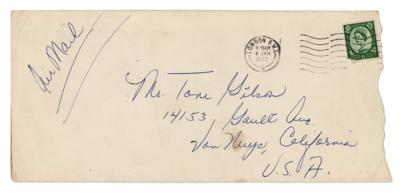 Air Mail
LONDON S.W.1
8 JAN
Mr. Tone Gilson
14153 Gault Ave.
Van Nuys, California
U.S.A.